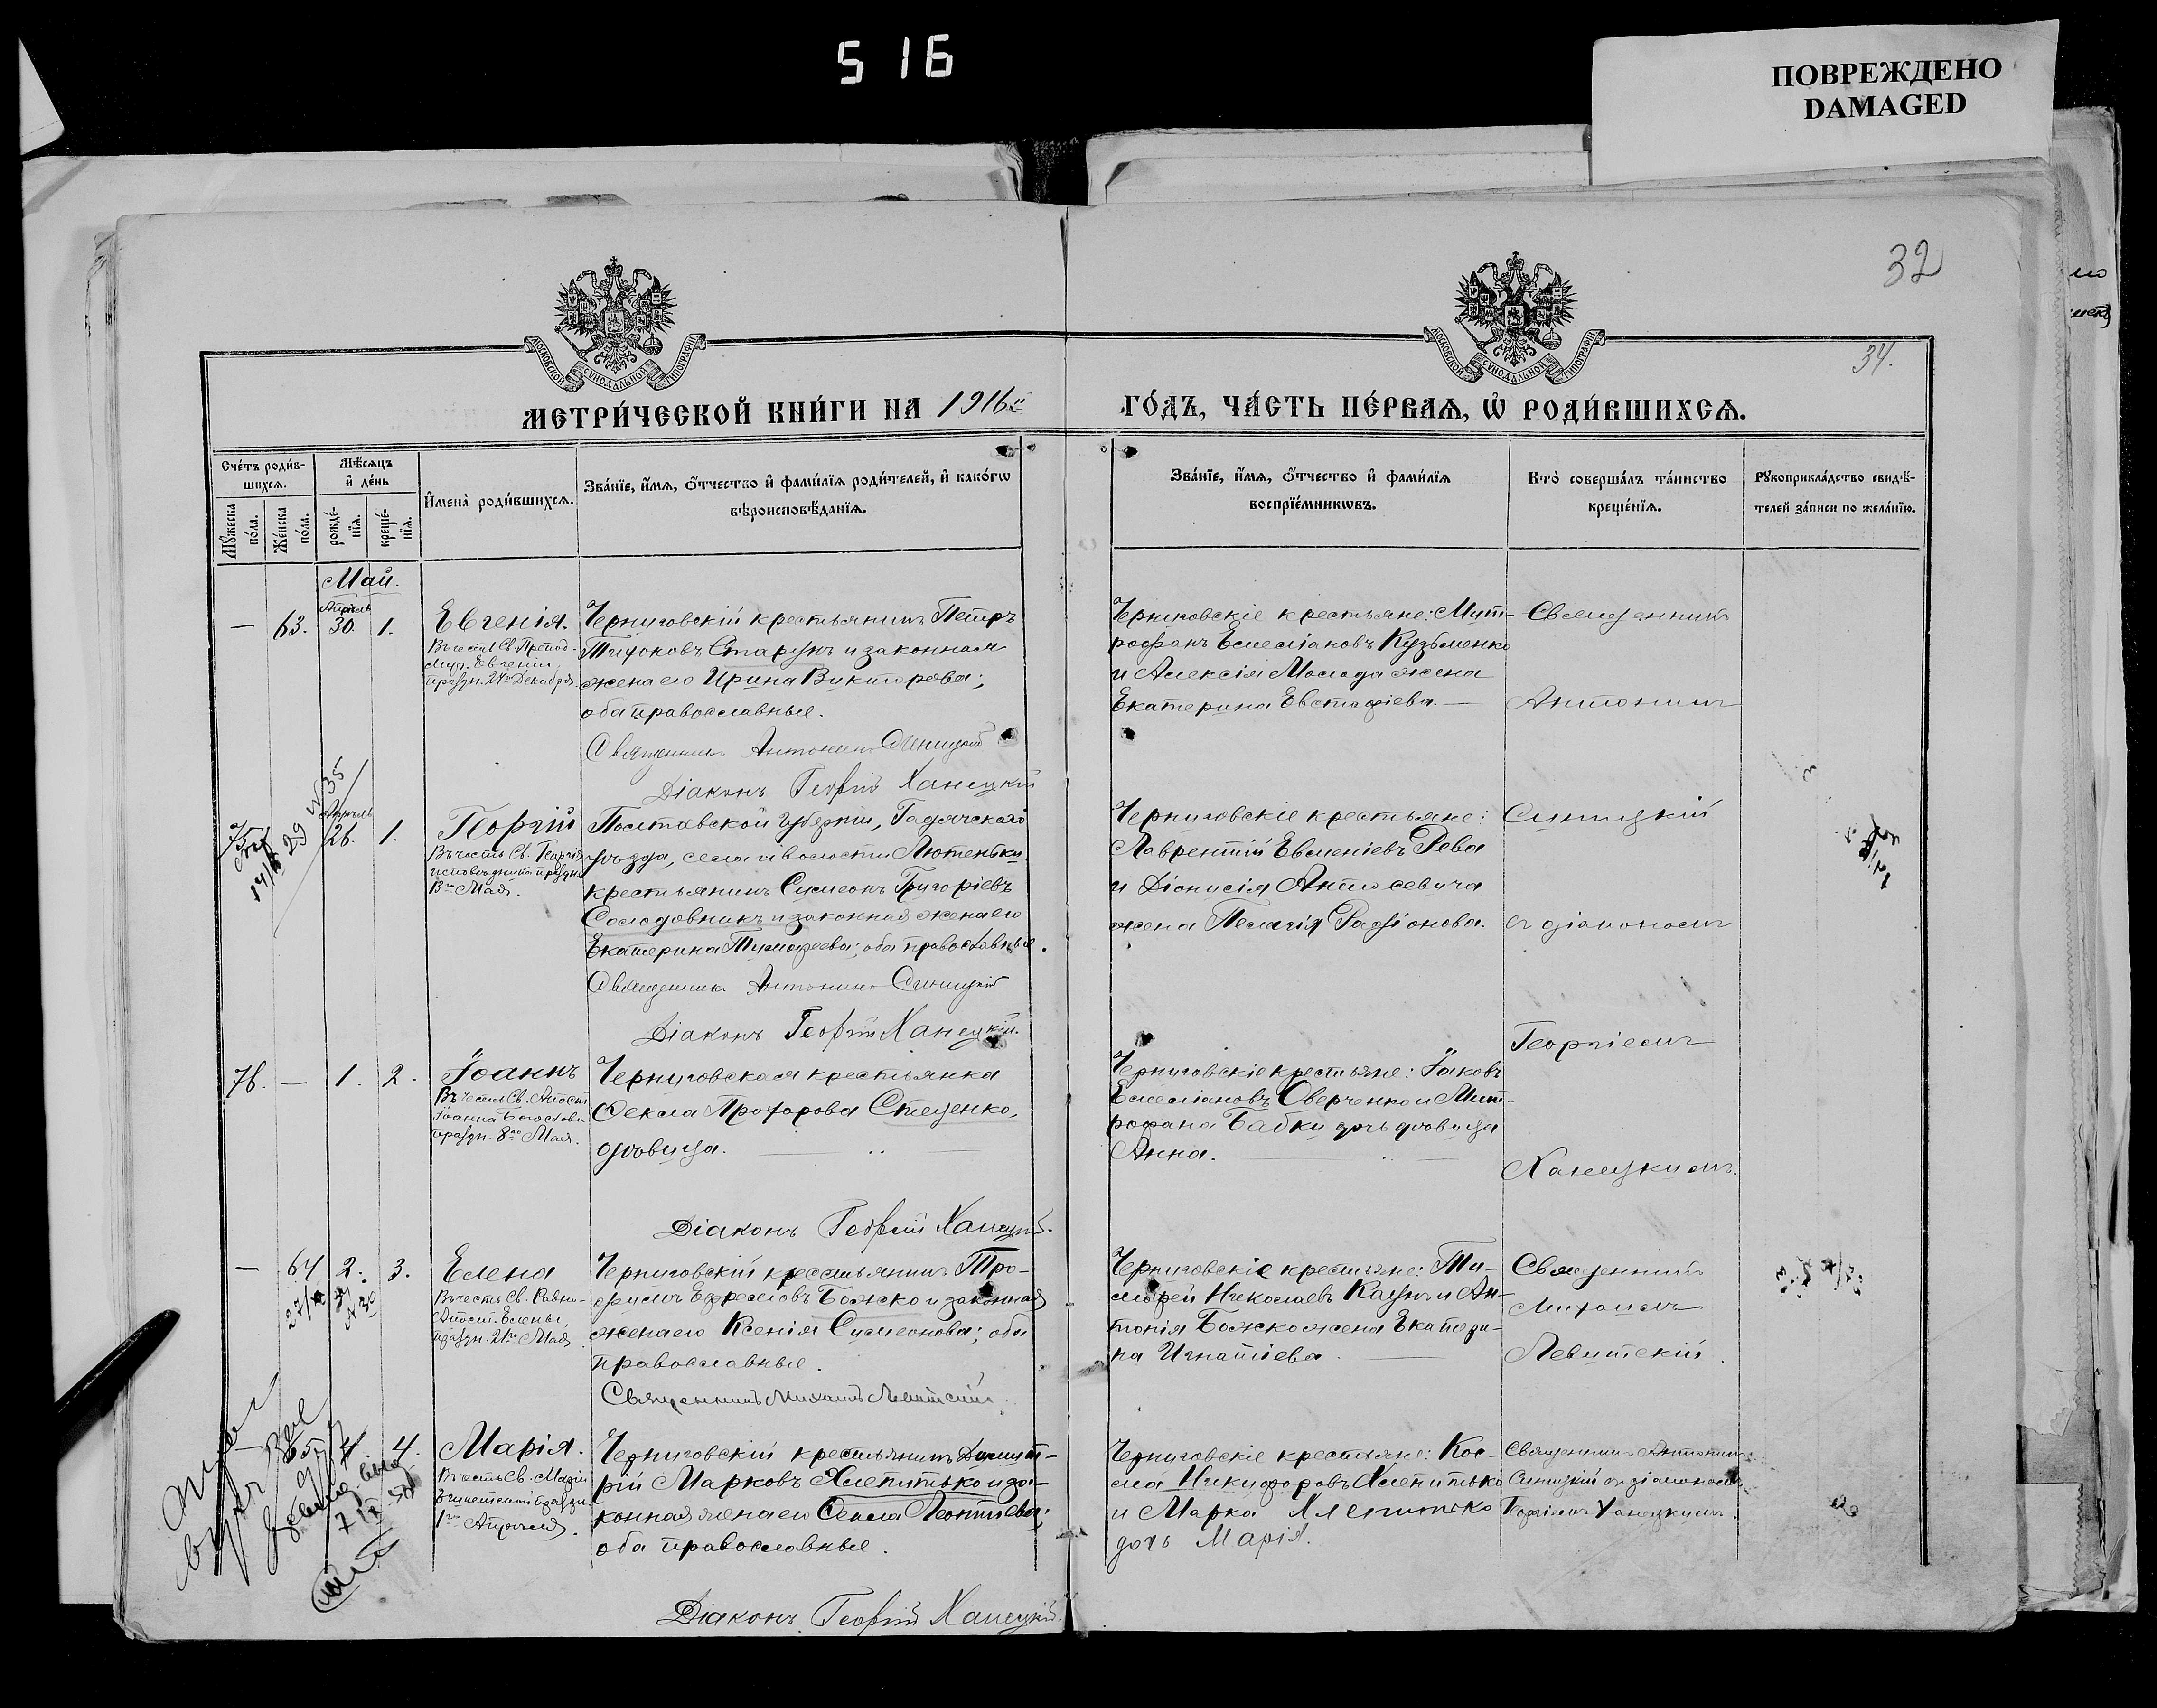 516
ПОВРЕЖДЕНО
DAMAGED
32
34.
МОСКОВСКОЙ СѴНОДАЛЬНОЙ ТИПОГРАФІИ
МОСКОВСКОЙ СѴНОДАЛЬНОЙ ТИПОГРАФІИ
МЕТРИ́ЧЕСКОЙ КНИ́ГИ НА 1916й
ГО́ДЪ, ЧА́СТЬ ПЕ́РВАЯ, Ѡ РОДИ́ВШИХСЯ.
Сче́тъ роди́в-
шихся.
Мꙋ́жеска по́ла.
Же́нска по́ла.
Мѣ́сяцъ
и де́нь
рожде́-
нїя.
креще́-
нїя.
Имена̀ роди́вшихся.
Зва́нїе, и́мя, о́тчество и фами́лїя роди́телей, и како́гѡ
вѣроисповѣ́данїя.
Зва́нїе, и́мя, о́тчество и фами́лїя
воспрїе́мникѡвъ.
Кто̀ соверша́лъ та́инство
креще́нїя.
Рꙋкоприкла́дство свидѣ́-
телей за́писи по жела́нїю.
Май.
Апрѣль
— 63. 30. 1.
Евгенія.
Въ честь Св. Препод-
муч. Евгеніи,
праздн. 24го Декабря.
Черниговскій крестьянинъ Петръ
Титоковъ Старунъ и законная
жена его Ирина Викторова;
оба православные.
Священникъ Антонинъ Синицкій
Діаконъ Георгій Ханецкій
Черниговскіе крестьяне: Мит-
рофанъ Емеліановъ Кузьменко
и Алексія Молода жена
Екатерина Евстафіева. —
Священникъ
Антонинъ
Апрѣль
75 26. 1.
29
Георгій
Въ честь Св. Георгія
исповѣдника праздн.
Полтавской губерніи, Гадячскаго
уѣзда, села и волости Лютеньки
крестьянинъ Симеонъ Григоріевъ
Солодовникъ и законная жена его
Екатерина Тимофеева; оба православные.
Священникъ Антонинъ Синицкій
Діаконъ Георгій Ханецкій.
Черниговскіе крестьяне:
Лаврентій Евменіевъ Рева
и Діонисія Антосевича
жена Пелагія Родіонова.
Синицкій
съ діакономъ
Георгіемъ
76. — 1. 2.
Іоаннъ
Въ честь Св. Апост.
Іоанна Богослова
праздн. 8го Мая.
Черниговская крестьянка
Ѳекла Прохорова Стеценко,
дѣвица.
Діаконъ Георгій Ханецкій.
Черниговскіе крестьяне: Іаковъ
Емеліановъ Оверченко и Мит-
рофана Бабки дочь дѣвица
Анна.
Ханецкимъ.
— 64 2. 3.
Елена
Въ честь Св. Равно-
Апост. Елены,
праздн. 21го Мая.
Черниговскій крестьянинъ Тро-
фимъ Ефремовъ Божко и законная
жена его Ксенія Симеонова; оба
православные.
Священникъ Михаилъ Левитскій.
Черниговскіе крестьяне: Ти-
мофей Николаевъ Каунъ и Ан-
тонія Божко жена Екатери-
на Игнатіева.
Священникъ
Михаилъ
Левитскій.
65 4. 4.
Марія.
Въ честь Св. Маріи
Египетской праздн.
1го Апрѣля.
Черниговскій крестьянинъ Димит-
рій Марковъ Хлепитько и за-
конная жена его Ѳекла Леонтіева;
оба православные.
Діаконъ Георгій Ханецкій.
Черниговскіе крестьяне: Кос-
ма Никифоровъ Хлепитько
и Марка Хлепитько
дочь Марія.
Священникъ Антонинъ
Синицкій съ діакономъ
Георгіемъ Ханецкимъ.